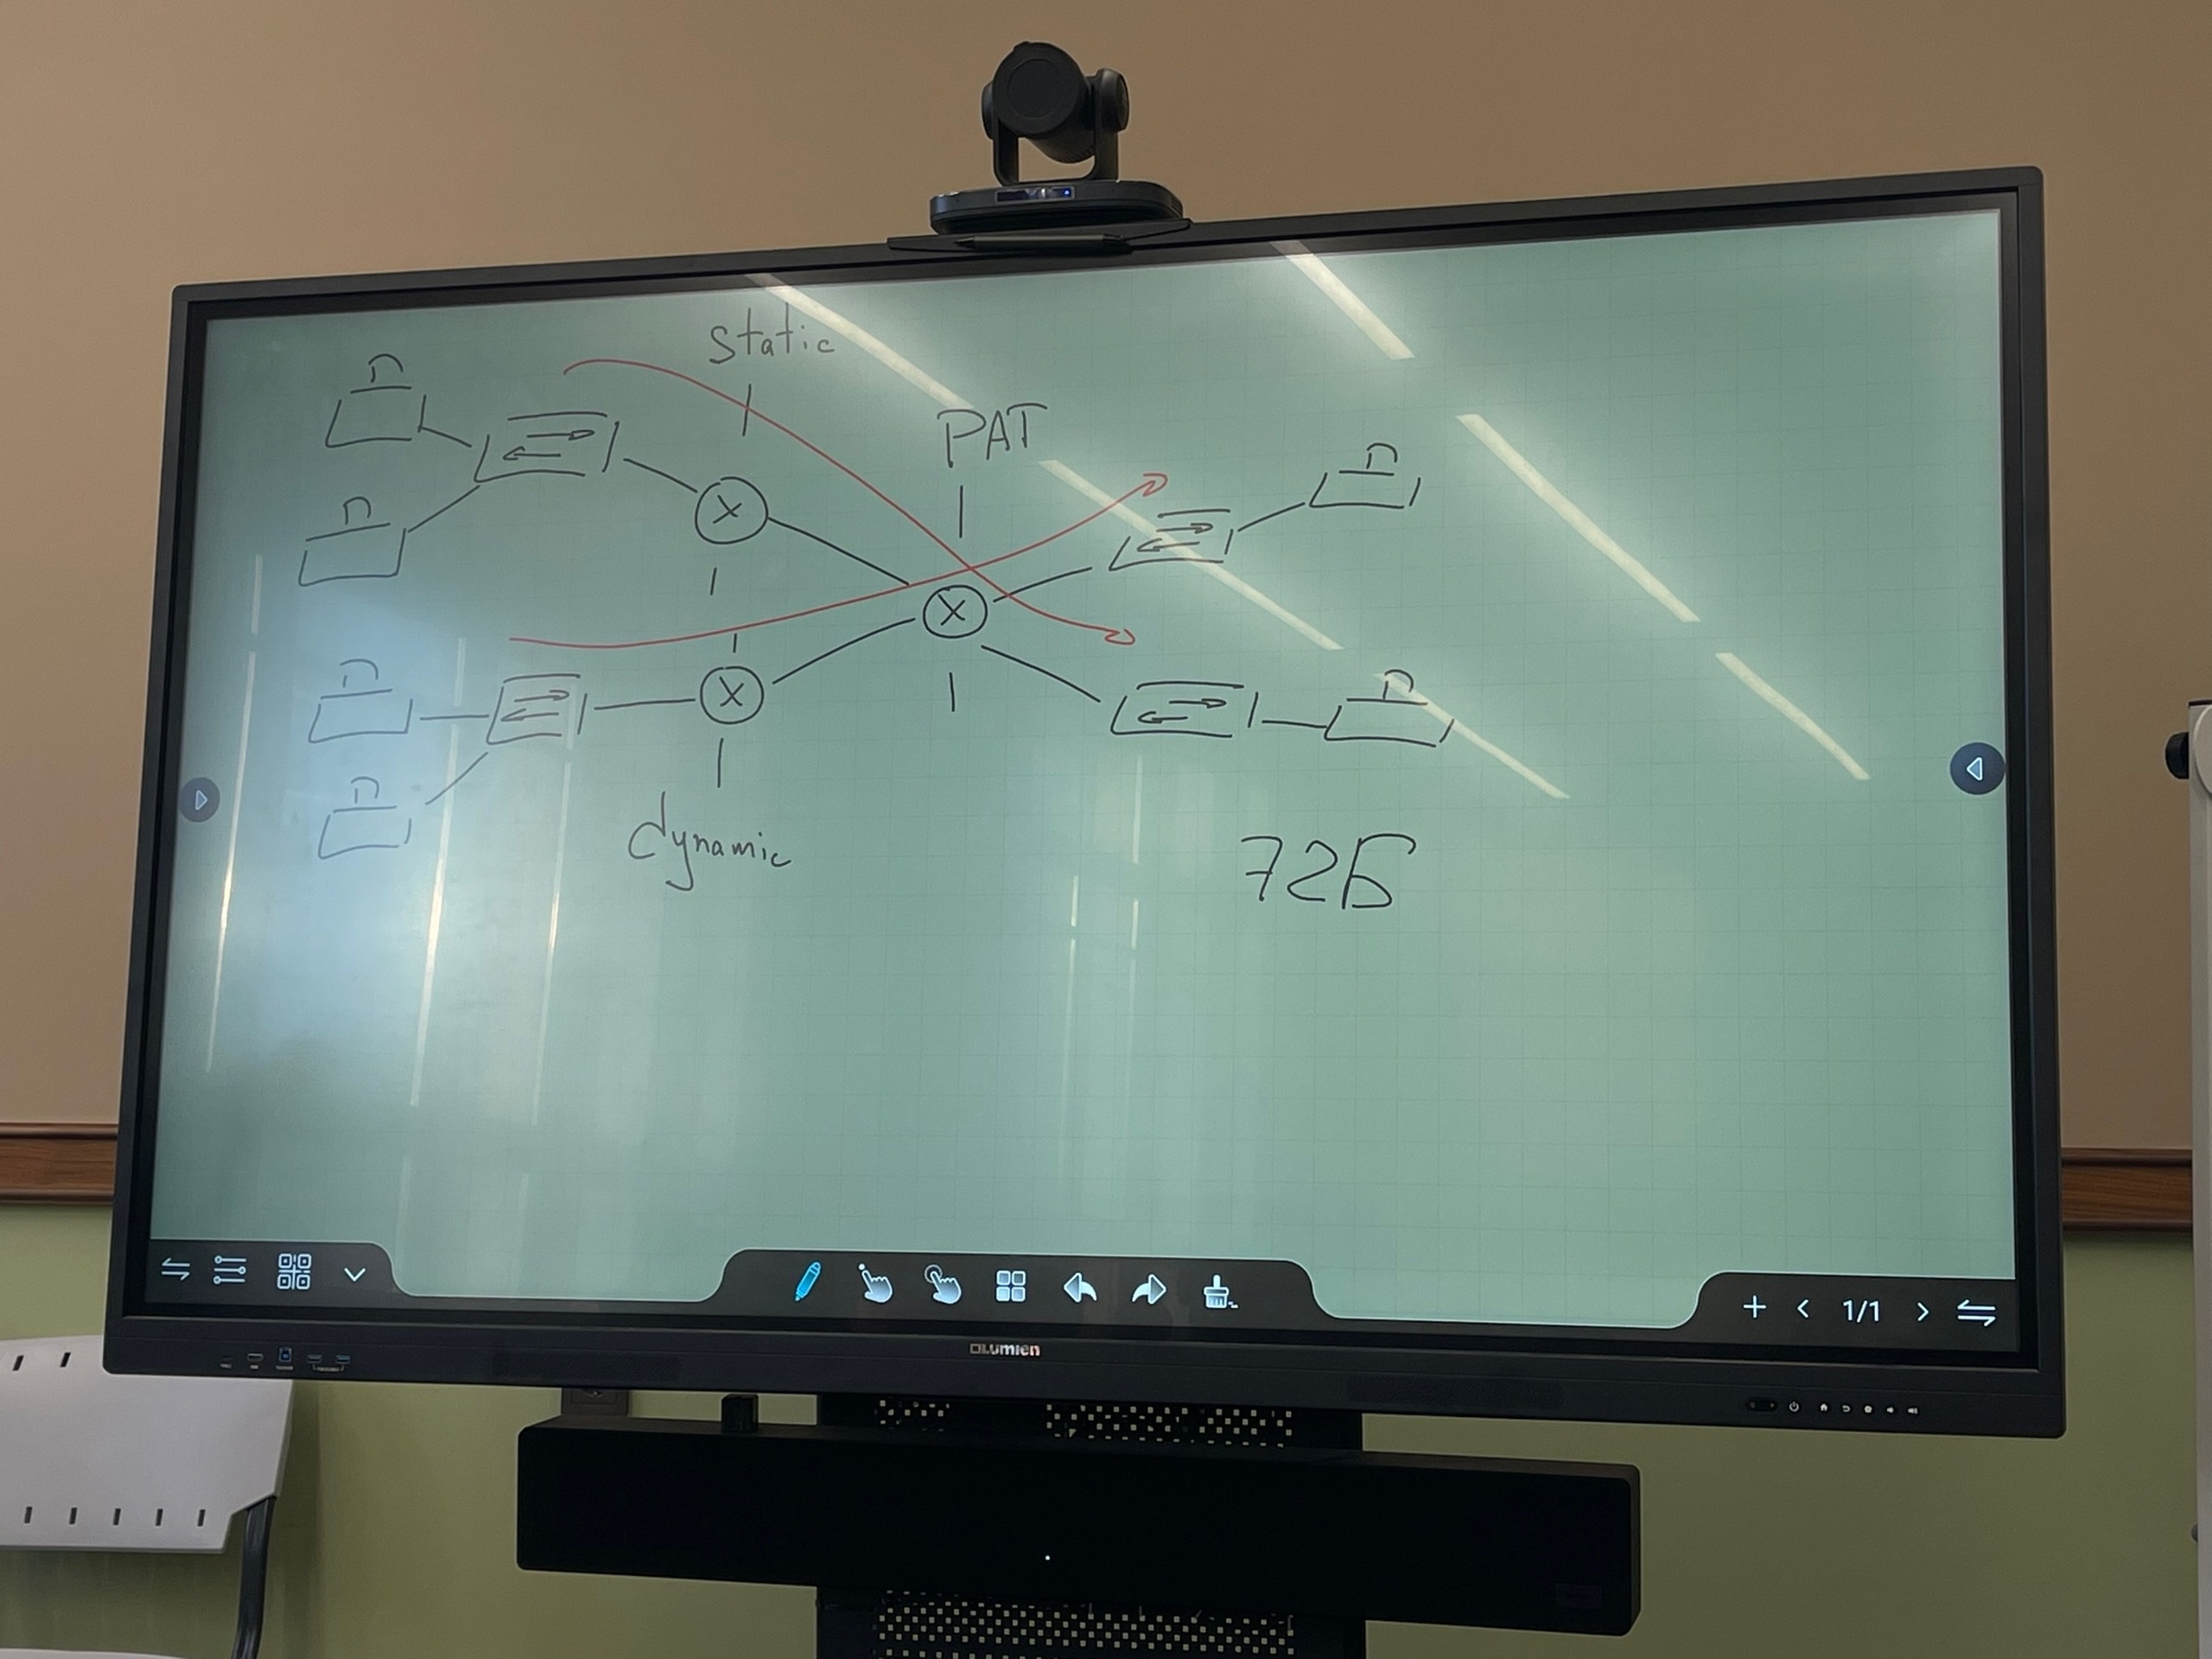 static
PAT
dynamic
72Б
1/1
Lumien